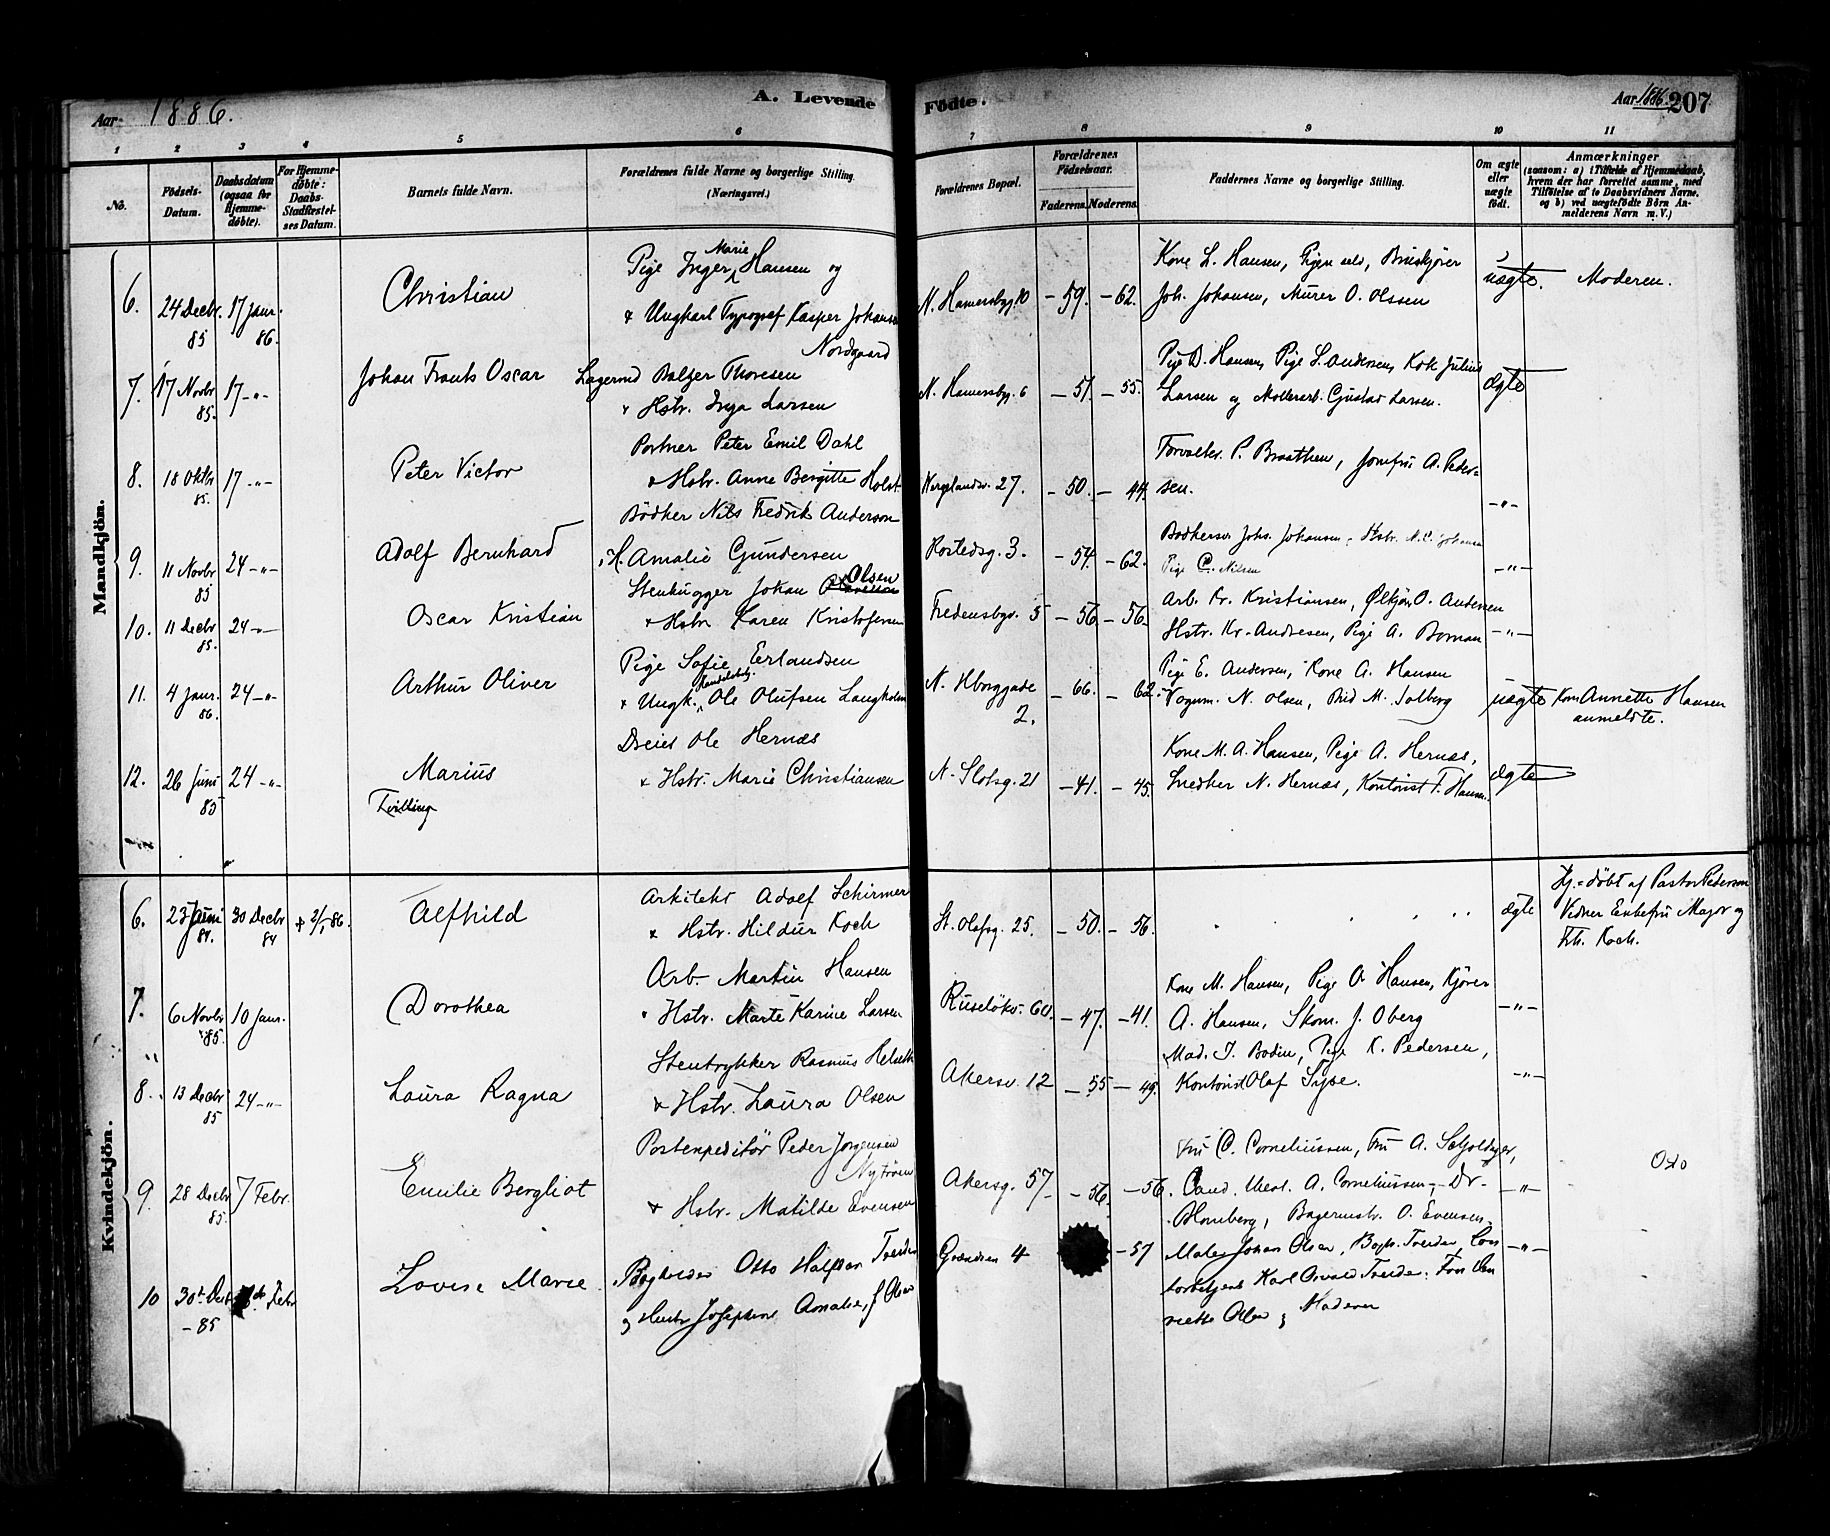 Aar 1886.
A. Levende Fødte.
Aar 1886. 207
1 2 3 4 5 6 7 8 9 10 11
No.
Fødsels-Datum.
Daabsdatum (ogsaa for Hjemme-døbte).
For Hjemme-døbte: Daabs-Stadfæstel-ses Datum.
Barnets fulde Navn.
Forældrenes fulde Navne og borgerlige Stilling. (Næringsvei.)
Forældrenes Bopæl.
Forældrenes Fødselsaar.
Faderens. Moderens.
Faddernes Navne og borgerlige Stilling.
Om ægte eller uægte født.
Anmærkninger
(saasom: a) i Tilfælde af Hjemmedaab,
hvem der har forrettet samme, med
Tilføielse af to Daabsvidners Navne,
og b) ved uægtefødte Børn An-
melderens Navn m. V.)
Mandkjøn.
6. 24 Decbr. 85 17 Janr. 86. Christian Pige Inger Marie Hansen og
& Ungkarl Typograf Kasper Johansen Nordgaard
N. Hamersbg. 10 - 59. - 62. Kone L. Hansen, Pigen selv, Bruskjører
Joh. Johansen, Murer O. Olssen uægte. Moderen.
7. 17 Novbr 85. 17 -"- Johan Frants Oscar Lagermd Balzer Thoresen
& Hstr. Inga Larsen
N. Hamersbg. 6 - 51. - 55. Pige D. Hansen, Pige L. Andersen, Kok Julius
Larsen og Møllerarb. Gustav Larsen. ægte
8. 18 Oktbr 85. 17 -"- Peter Victor Portner Peter Emil Dahl
& Hstr. Anne Bergitte Holst
Wergelandsv. 27. - 50. - 44. Forvalter P. Braathen, Jomfru A. Peder-
sen. -"-
9. 11 Novbr 85 24 -"- Adolf Bernhard Bødker Nils Fredrik Anderson
& H. Amalie Gundersen
Rostedsg. 3. - 54. - 62. Bødkersv. Johs. Johansen, Hstr. N. C. Johansen
Pige C. Nilsen -"-
10. 11 Decbr 85. 24 -"- Oscar Kristian Stenhugger Johan Olsen
& Hstr. Karen Kristofersen
Fredensbgv. 5 - 56. - 56. Arb. Kr. Kristiansen, Ølkjør. O. Andersen
Hstr. Kr. Andresen, Pige A. Boman -"-
11. 4 Janr. 86. 24 -"- Arthur Oliver Pige Sofie Erlandsen
& Ungk. Handelsbtj. Ole Olufsen Langholm
N. Hborggade 2. - 66. - 62. Pige E. Andersen, Kone A. Hansen
Vognm. N. Olsen, Bud M. Solberg uægte Kone Annette Hansen
anmeldte.
12. 26 Juni 85 24 -"- Marius
Tvilling
Dreier Ole Hernæs
& Hstr. Marie Christiansen
N. Slotsg. 21 - 41. - 45. Kone M. A. Hansen, Pige A. Hernæs,
Snedker N. Hernæs, Kontorist T. Hansen. ægte
Kvindekjøn.
6. 23 Juni 84. 30 Decbr 84 + 2/1-86. Alfhild Arkitekt Adolf Schirmer
& Hstr. Hildur Koch
St. Olafsg. 25. - 50. - 56. ægte Hj.=døbt af Pastor Pederson
Vidner Enkefru Major og
Frk. Koch.
7. 6 Novbr 85. 10 Janr. Dorothea Arb. Martin Hansen
& Hstr. Marte Karine Larsen
Ruseløkv. 60. - 47. - 41. Kone M. Hansen, Pige O. Hansen, Kjører
A. Hansen, Skom. J. Oberg -"-
8. 13 Decbr 85 24 -"- Laura Ragna Stentrykker Rasmus Helseth
& Hstr. Laura Olsen
Akersv. 12 - 55 - 49. Mad. J. Bodin, Pige K. Pedersen,
Kontorist Olaf Sype. -"-
9. 28 Decbr 85. 7 Febr. Emilie Bergliot Postexpeditør Peder Jørgensen Nytrøen
& Hstr. Matilde Evensen
Akersg. 57. - 56. - 56. Fru C. Corneliussen, Fru A. Schjoldager,
Cand. theol. A. Corneliussen, Dr.
Homberg, Bagermstr. O. Evensen. -"- Oslo
10 30te Decbr - 85 Febr Lovise Marie Bogholder Otto Halfdan Tveder
og Hustr Josephine Amalie, f Olsen
Grændsen 4 - 57 Maler Johan Olsen, Bogh. Tveder, Con
torbetjent Karl Osvald Tvede. Frøk Hen
riette Olsen og Moderen -"-